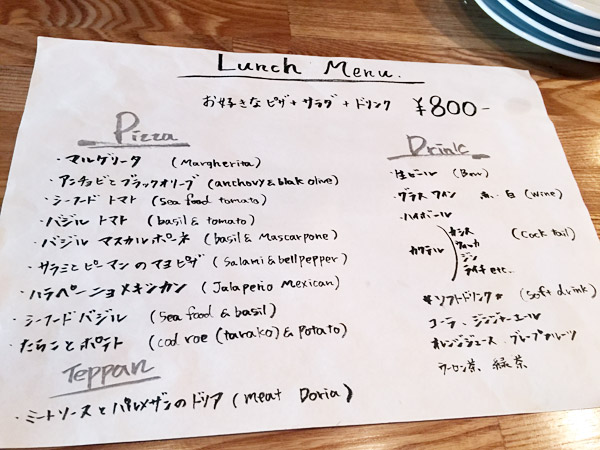 Lunch Menu.
お好きなピザ+サラダ+ドリンク ¥800-
Pizza
・マルゲリータ (Margherita)
・アンチョビとブラックオリーブ (anchovy & blak olive)
・シーフード トマト (Sea food tomato)
・バジル トマト (basil & tomato)
・バジル マスカルポーネ (basil & Mascarpone)
・サラミとピーマンのマヨピザ (Salami & bellpepper)
・ハラペーニョメキシカン (Jalapeno Mexican)
・シーフードバジル (Sea food & basil)
・たらことポテト (cod roe (tarako) & potato)
Teppan
・ミートソースとパルメザンのドリア (meat Doria)
Drink
・生ビール (Beer)
・グラスワイン 赤・白 (wine)
・ハイボール
カクテル (Cock tail)
カシス
ウォッカ
ジン
ライチ etc.
*ソフトドリンク* (Soft drink)
コーラ、ジンジャーエール
オレンジジュース、グレープフルーツ
ウーロン茶、緑茶